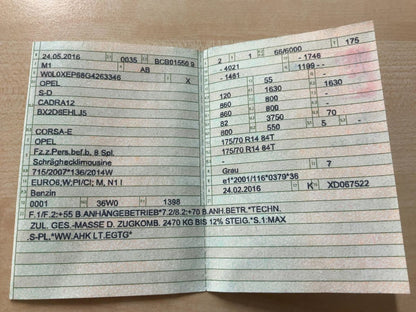 24.05.2016 0035 BCB01550 9
M1 AB
W0L0XEP68G4263346 X
OPEL
S-D
CADRA12
BX2DSEHLJ5
CORSA-E
OPEL
Fz.z.Pers.bef.b. 8 Spl.
Schräghecklimousine
715/2007*136/2014W
EURO6;W;PI/CI; M, N1 I
Benzin
0001 36W0 1398
2 1 66/6000 175
- 4021 - 1746
- 1481 1199 -
55
120 1630 1630
860 800
860 800
82 3750 70
800 550 5 -
175/70 R14 84T
175/70 R14 84T
-
Grau 7
e1*2001/116*0379*36
24.02.2016 K XD067522
F.1/F.2:+55 B.ANHÄNGEBETRIEB*7.2/8.2:+70 B.ANH.BETR.*TECHN.
ZUL. GES.-MASSE D. ZUGKOMB. 2470 KG BIS 12% STEIG.*S.1:MAX
.S-PL.*WW.AHK LT.EGTG*